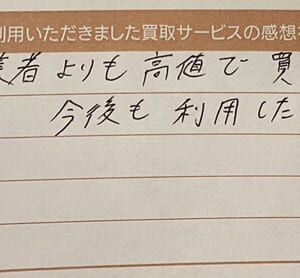 利用いただきました買取サービスの感想
業者よりも高値で買
今後も利用した